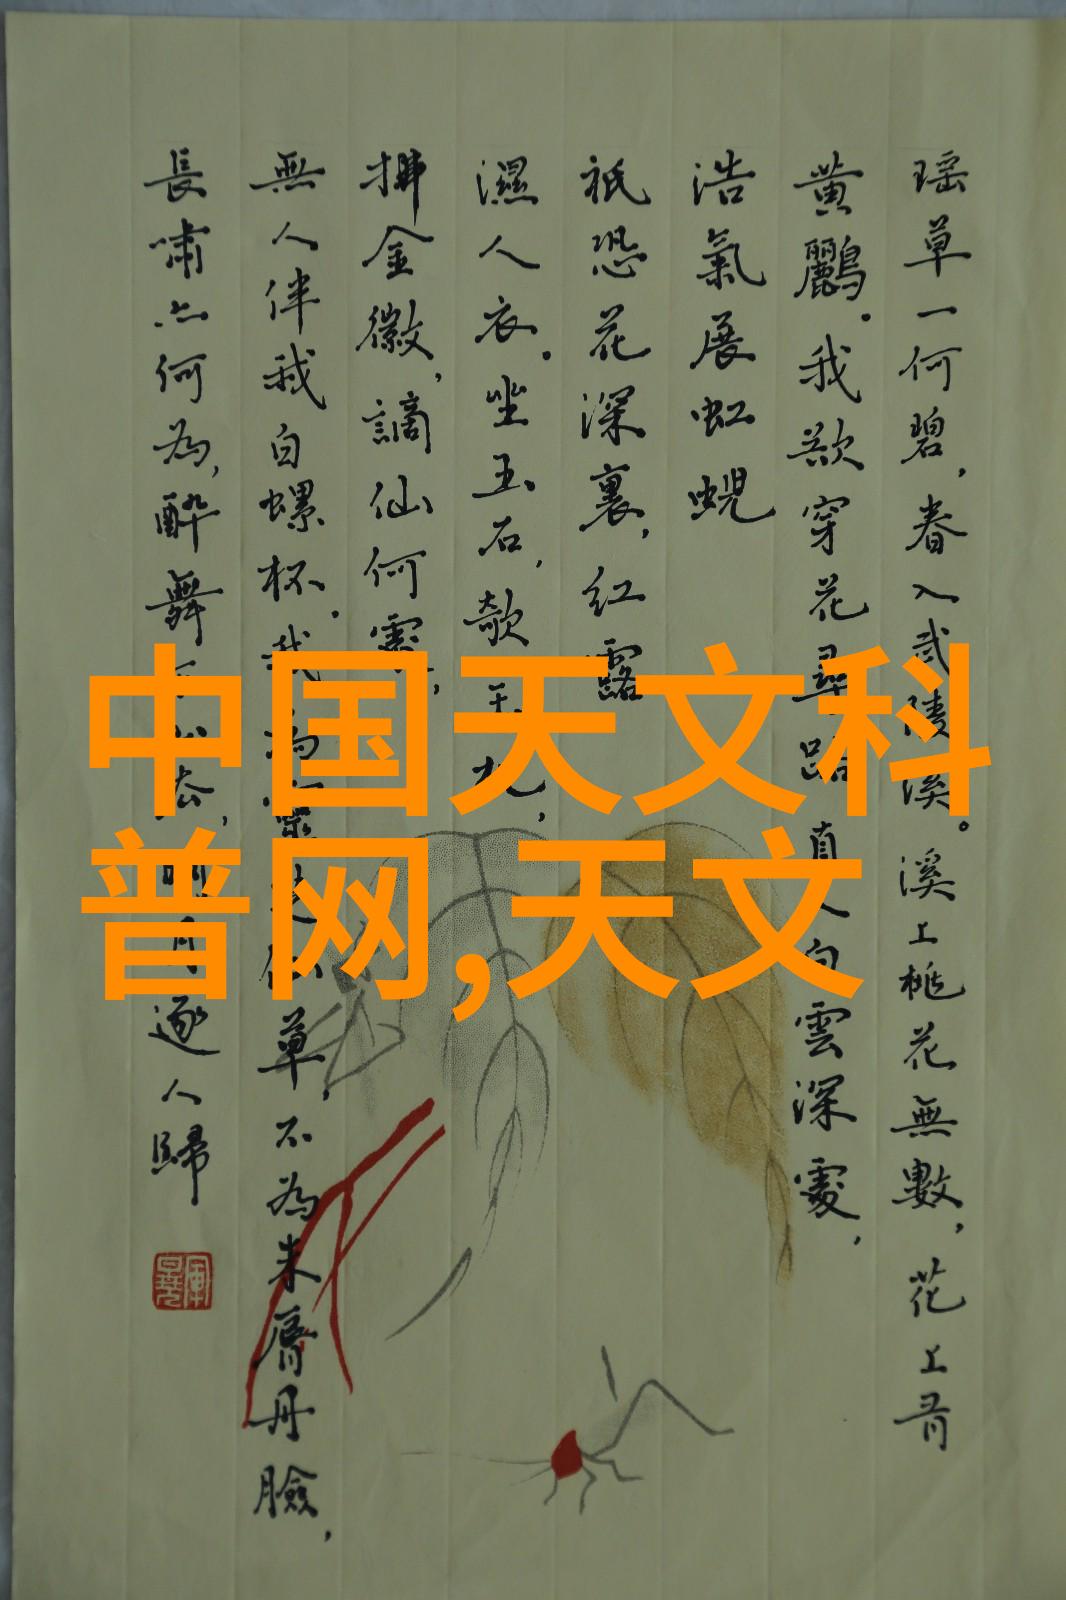 中国天文科
普网,天文
瑶草一何碧，春入武陵溪。溪上桃花無數，花上有
黄鸝。我欲穿花尋路，直入白雲深處，
浩氣展虹蜺
祇恐花深裏，红露
濕人衣。坐玉石，欹玉枕，
拂金徽，謫仙何處，
無人伴我白螺杯。我為靈芝仙草，不為朱脣丹臉，
長嘯亦何為，醉舞下山去，明月逐人歸